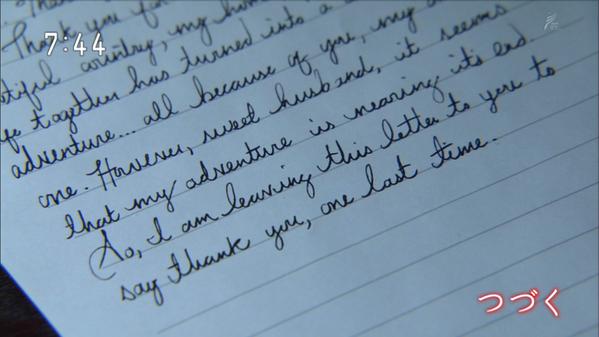 7:44
Thank you for
tiful country, my
together has turned into a
adventure... all because of you, my
one. However, sweet husband, it seems
that my adventure is nearing it's end.
So, I am leaving this letter to you to
say thank you, one last time.
つづく